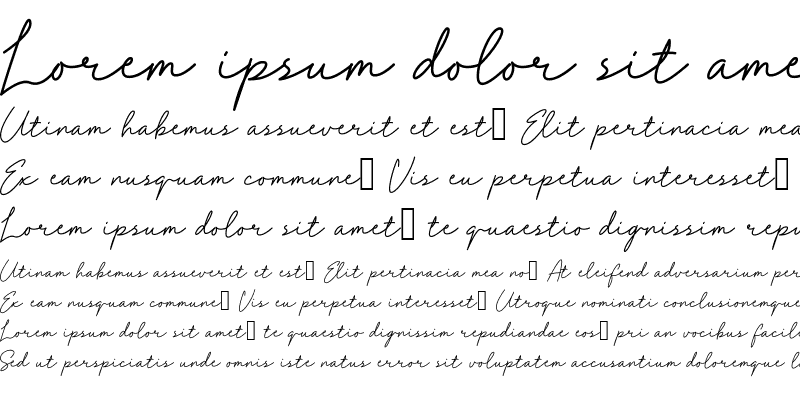 Lorem ipsum dolor sit ame
Utinam habemus assueverit et est▯ Elit pertinacia mea
Ex eam nusquam commune▯ Vis eu perpetua interesset▯
Lorem ipsum dolor sit amet▯ te quaestio dignissim repu
Utinam habemus assueverit et est▯ Elit pertinacia mea no▯ At eleifend adversarium per
Ex eam nusquam commune▯ Vis eu perpetua interesset▯ Utroque nominati conclusionemque
Lorem ipsum dolor sit amet▯ te quaestio dignissim repudiandae eos▯ pri an vocibus facil
Sed ut perspiciatis unde omnis iste natus error sit voluptatem accusantium doloremque l